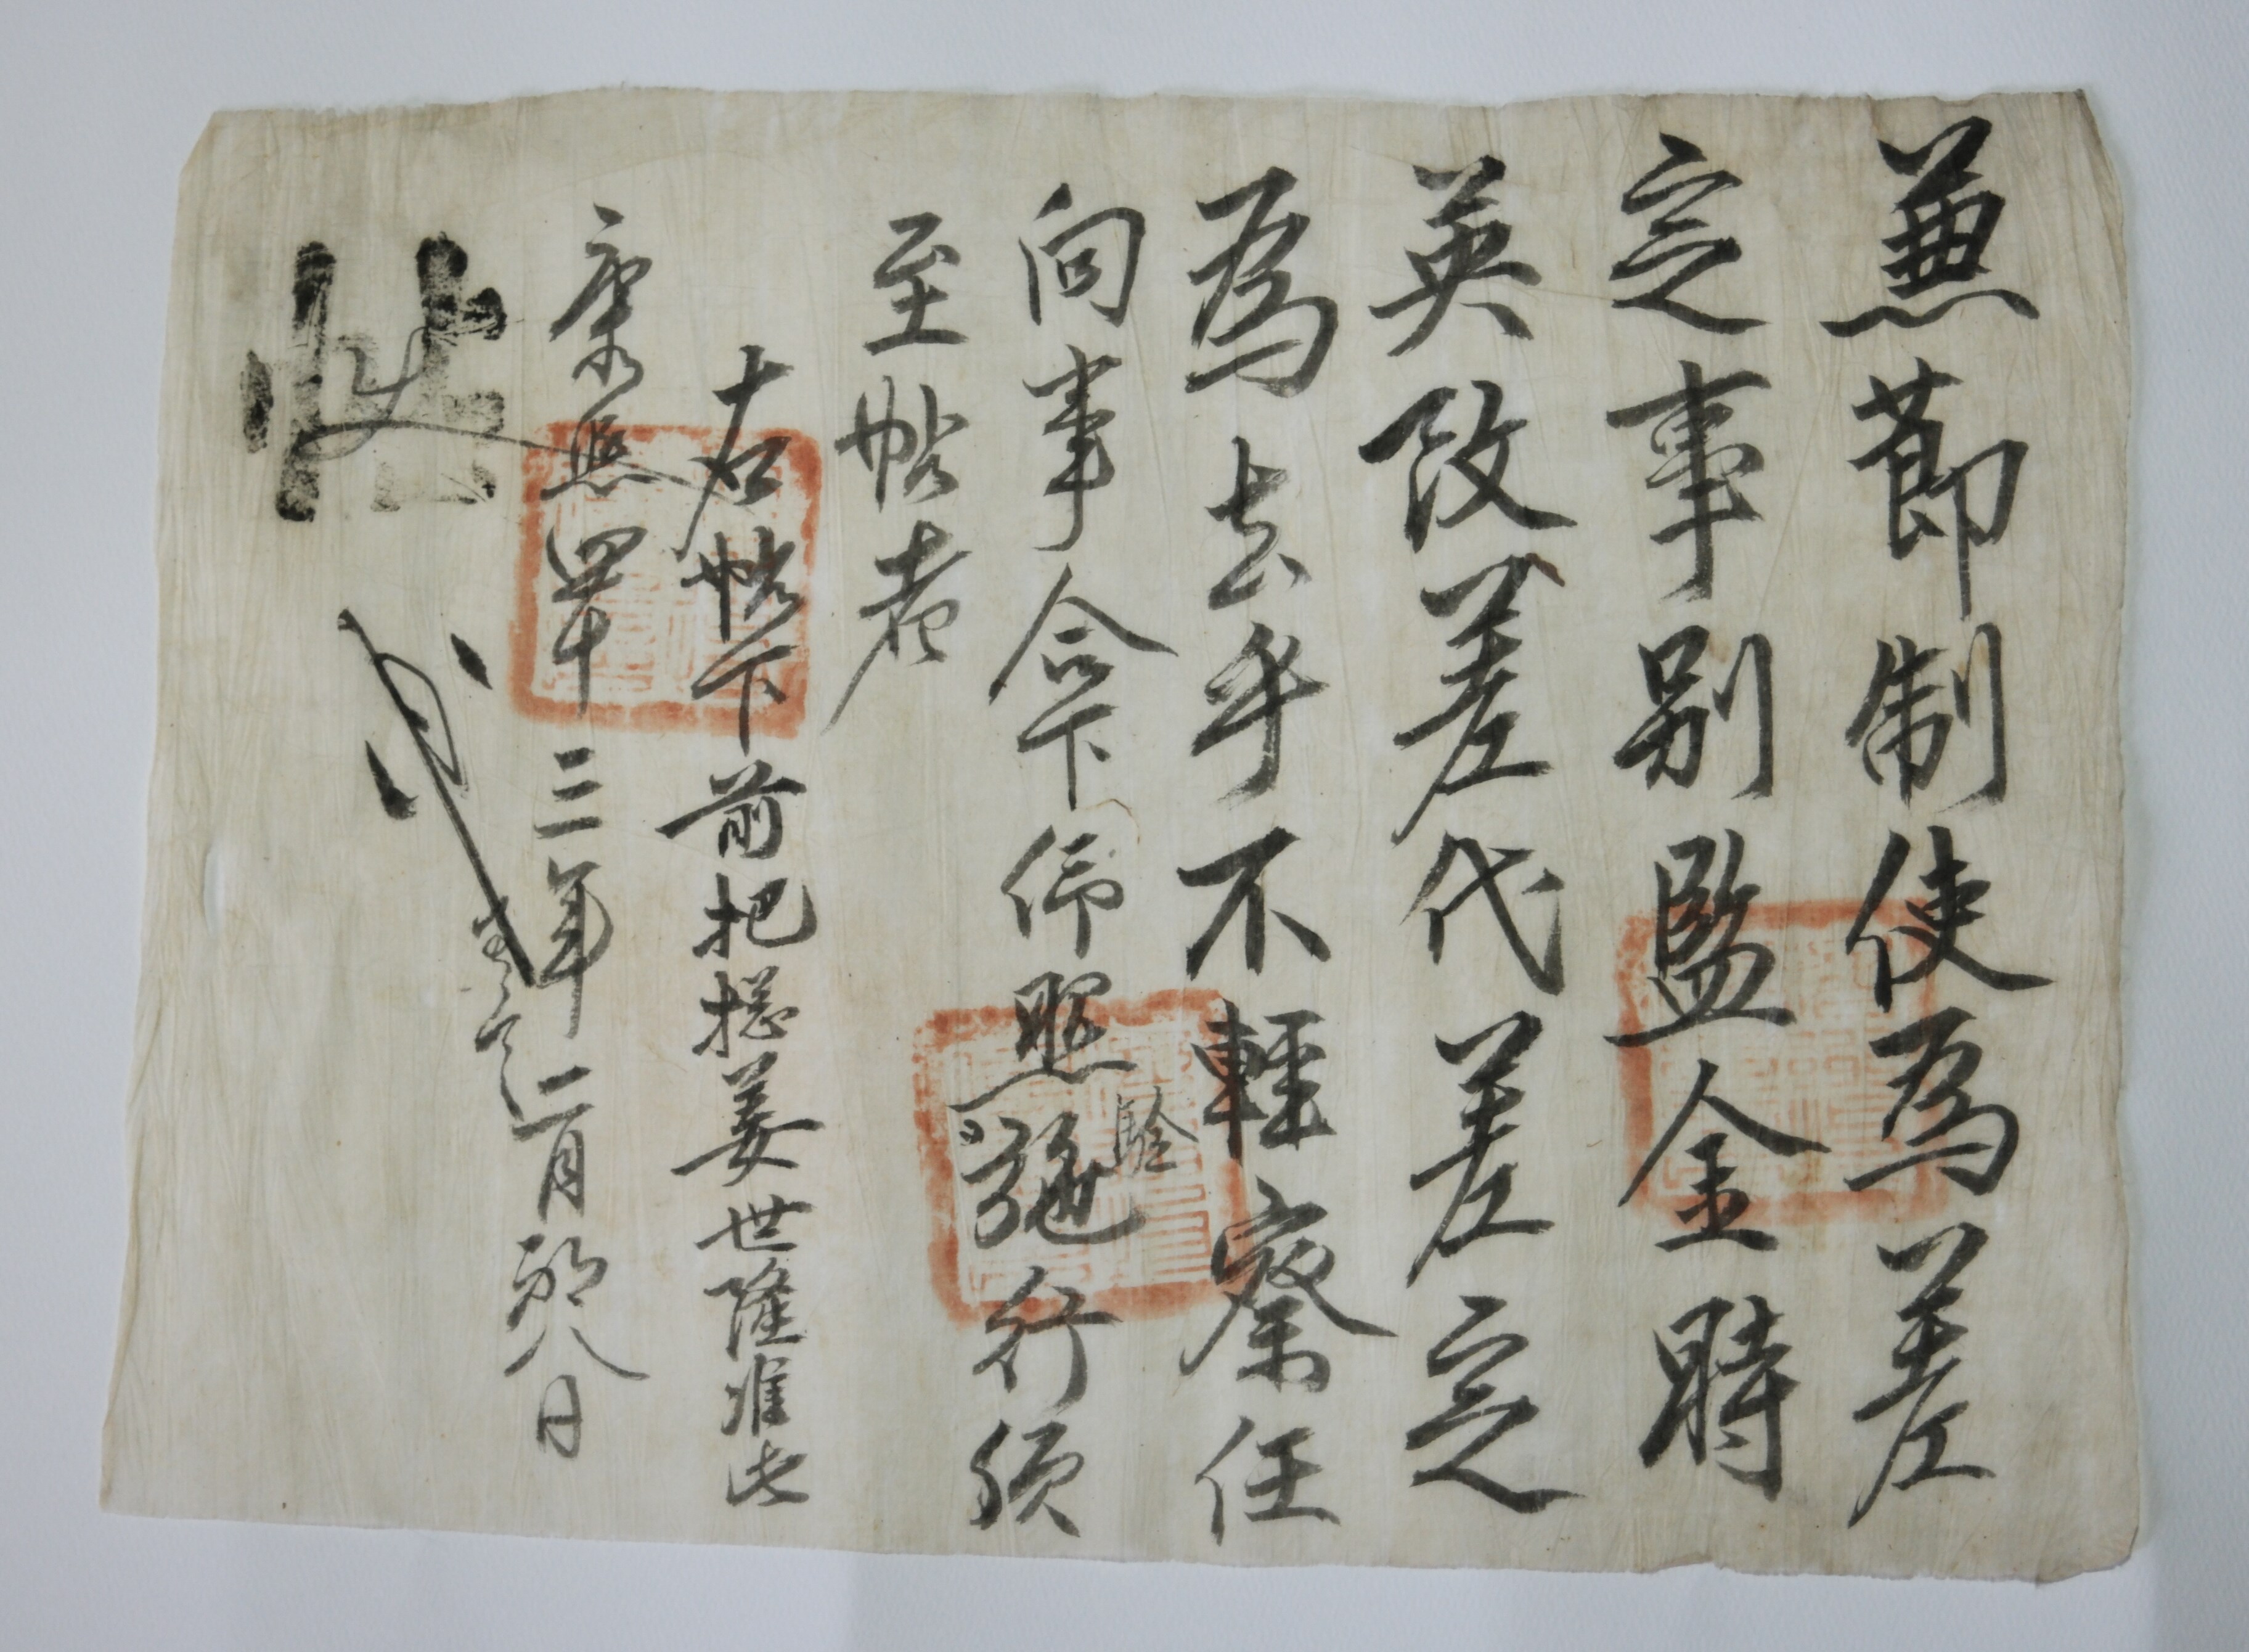 兼節制使爲差
定事別監金時
英改差代差定
爲去乎不輕察任
向事合下仰照驗施行須
至帖者
右帖下前把摠姜世隆准此
康熙四十三年二月初八日
帖